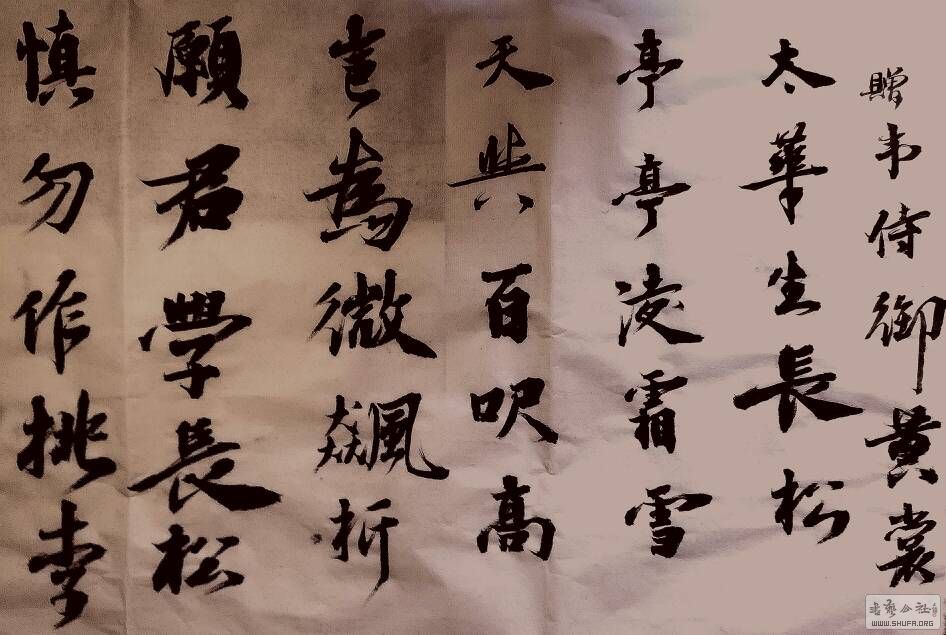 贈韦侍御黄裳
太華生長松
亭亭凌霜雪
天與百呎高
豈為微飆折
願君學長松
慎勿作桃李
书艺公社
WWW.SHUFA.ORG